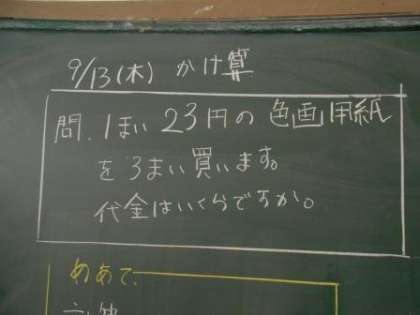 9/13(木) かけ算
問.1まい23円の色画用紙
を3まい買います。
代金はいくらですか。
めあて